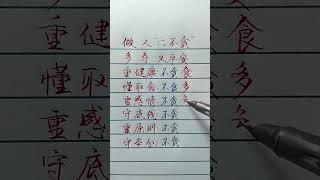 做人"六不贪"
多寿又平安
重健康:不贪食
懂取舍:不贪多
重感情:不贪
守底线:不贪
重原则:不贪
守本分:不贪